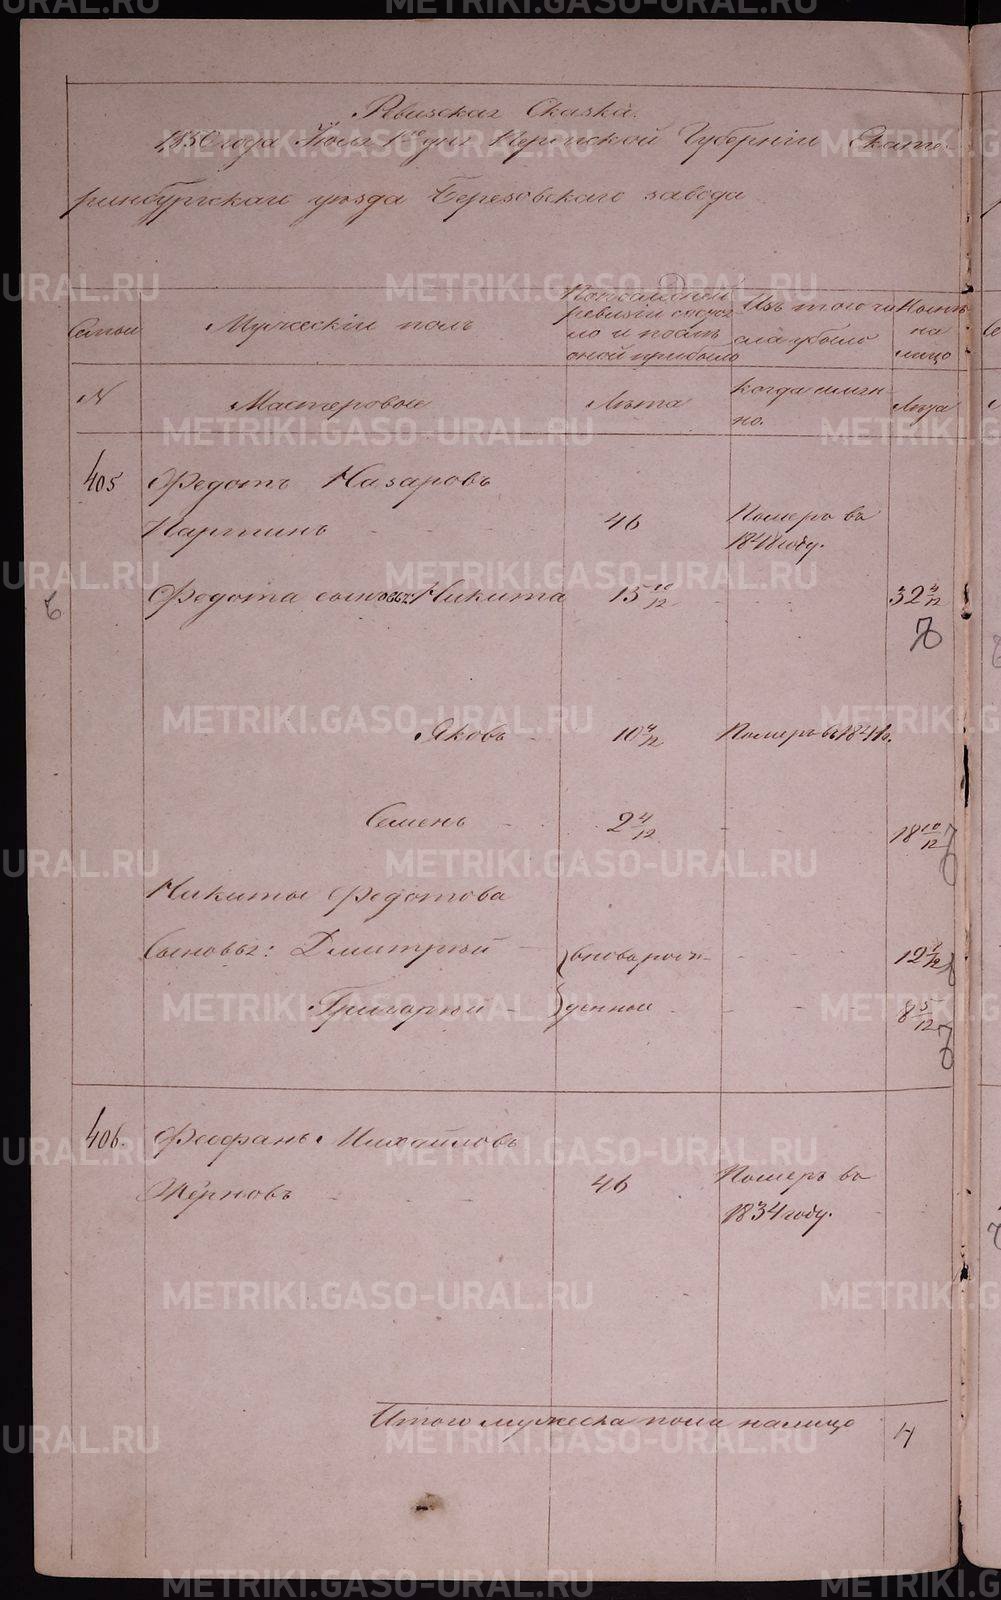 Ревизская Сказка.
1850 года Июля 1го дня Пермской Губернiи Екате-
ринбургскаго уѣзда Березовскаго завода
Семьи
Мужескiй полъ
По последней
ревизiи состоя
ло и послѣ
оной прибыло
Изъ того чи
сла убыло
Нынѣ
на
лицо
N
Мастеровые
Лѣта
Когда имен-
но.
Лѣта
405
Федотъ Назаровъ
Партинъ 46 Померъ въ
1848 году.
Федота сыновья: Никита 15 10/12 32 4/12
Яковъ 10 4/12 Померъ въ 1841 г.
Семенъ 2 4/12 18 10/12
Никиты Федотова
Сыновья: Дмитрiй вновь рож- 12
Григорiй денные 8 5/12
406. Феофанъ Михайловъ
Жерновъ 46 Померъ въ
1834 году.
Итого мужеска пола налицо 4
METRIKI.GASO-URAL.RU